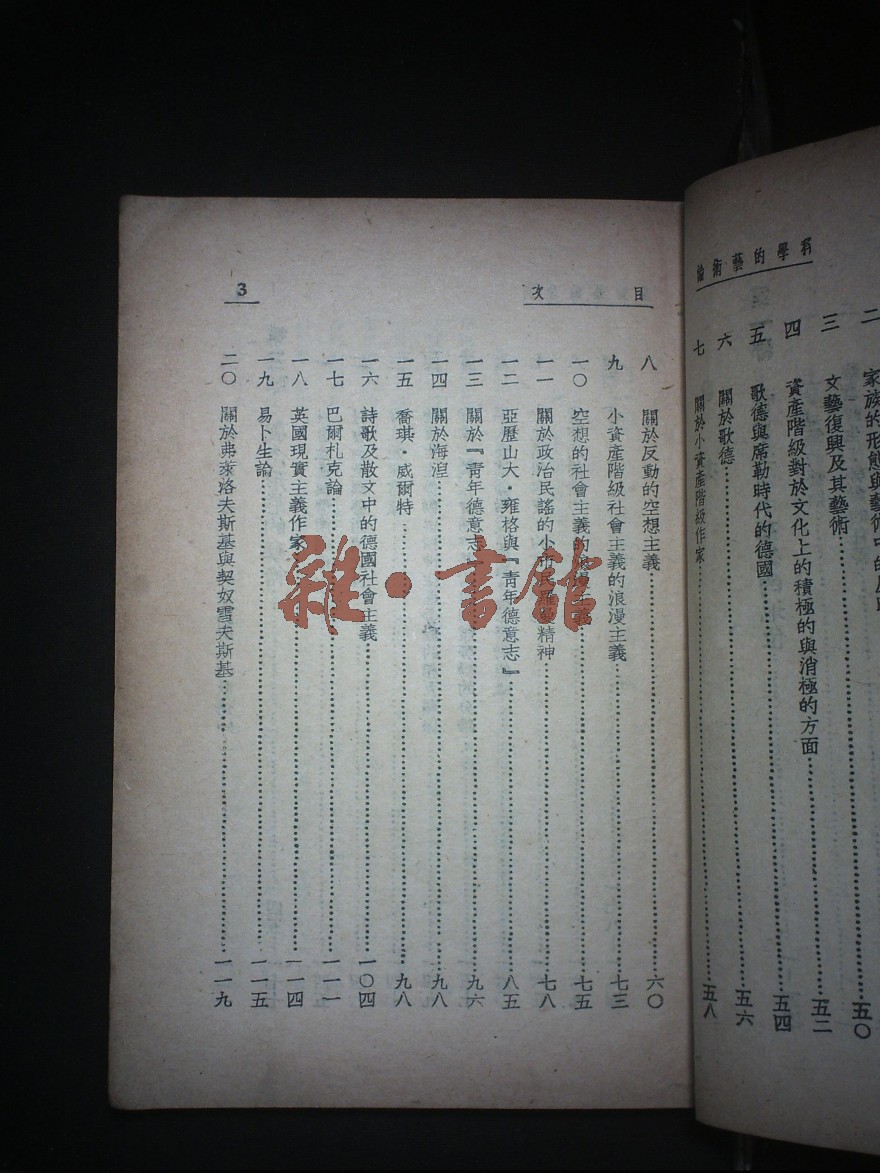 科學的藝術論
二 家族的形態與藝術中的 五〇
三 文藝復興及其藝術 五二
四 資產階級對於文化上的積極的與消極的方面 五四
五 歌德與席勒時代的德國 五六
六 關於歌德
七 關於小資產階級作家 五八
目次
3
八 關於反動的空想主義 六〇
九 小資產階級社會主義的浪漫主義 七三
一〇 空想的社會主義的浪漫主義 七五
一一 關於政治民謠的小市民 精神 七八
一二 亞歷山大·雍格與『青年德意志』 八五
一三 關於『青年德意志 九六
一四 關於海湼 九八
一五 喬琪·威爾特 九八
一六 詩歌及散文中的德國社會主義 一〇四
一七 巴爾札克論 一一一
一八 英國現實主義作家 一一四
一九 易卜生論 一一五
二〇 關於弗萊洛夫斯基與契奴雪夫斯基 一一九
雜·書館